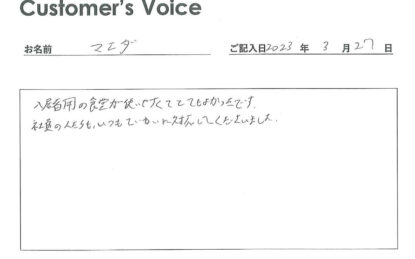 Customer's Voice
お名前 マエダ ご記入日2023年3月27日
入居者用の食堂が使いやすくてとてもよかったです。
社員の人たちも、いつもていねいに対応してくださいました。